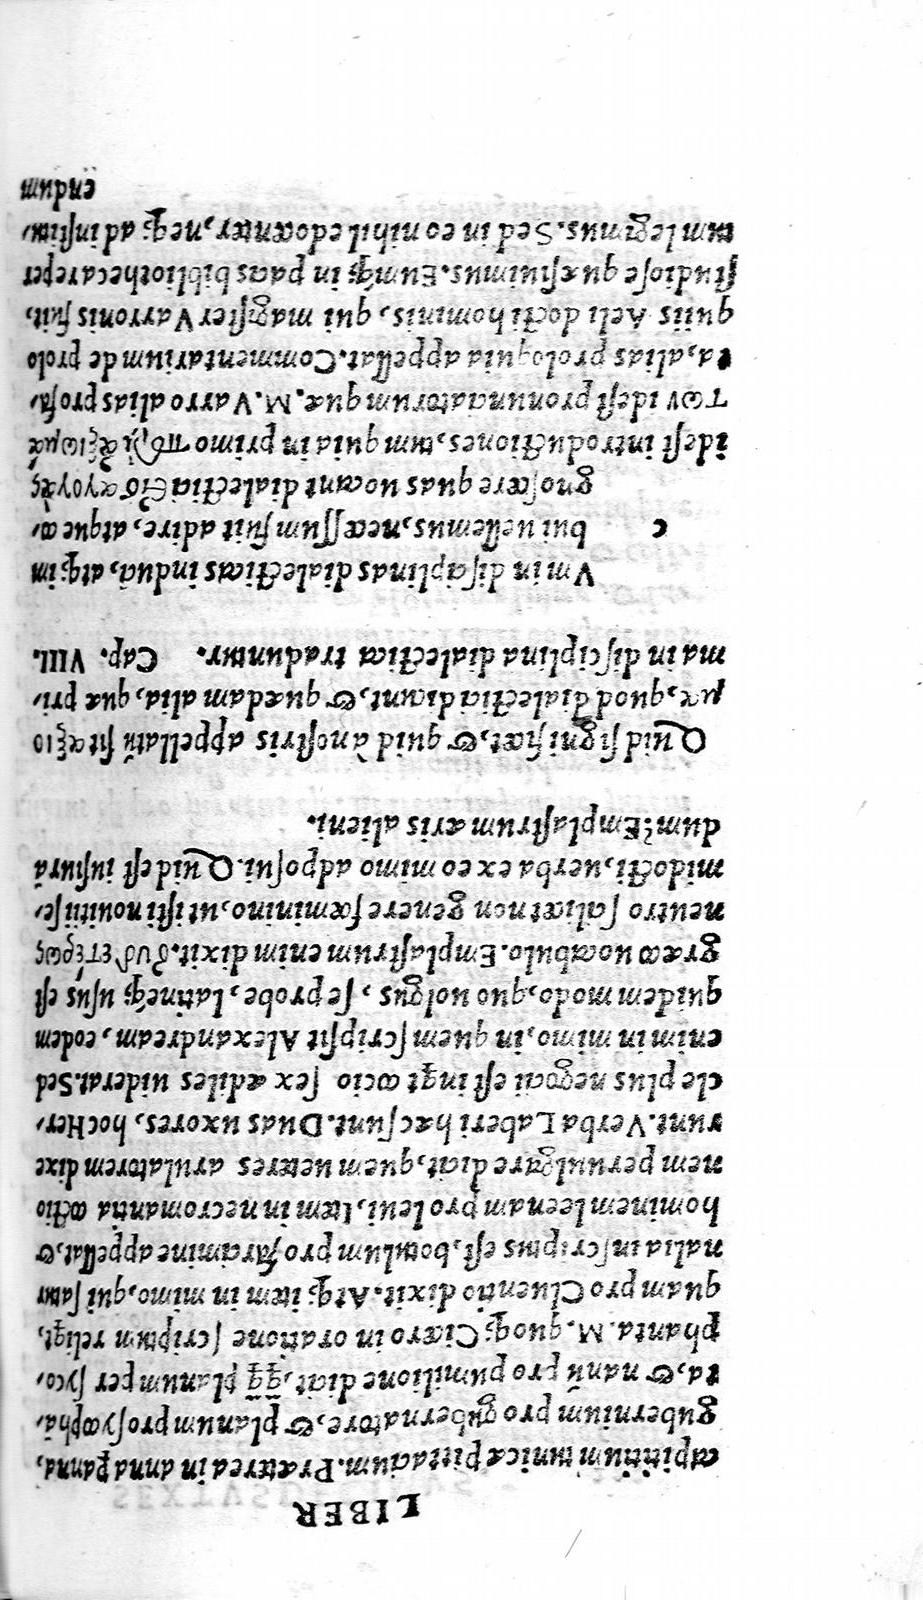 LIBER
capitium tunicæ pittacium. Præterea in anna ꝑanna,
gubernium pro gubernatore, & planum pro sycophã,
ta, & nanũ pro pumilione dicit, ꝙꝙ planum per syco,
phanta. M. quoq; Cicero in oratione scriptum reliqt,
quam pro Cluentio dixit. Atq; itẽ in mimo, qui satur
nalia inscriptus est, botulum pro farcimine appellat, &
hominem leenam pro leui, Item in necromantia coctio
nem peruulgare dicit, quem ueteres arulatorem dixe
runt. Verba Laberi hæc sunt. Duas uxores, hoc Her,
cle plus negocii est inqt cocio sex ædiles uiderat. Sed
enim in mimo, in quem scripsit Alexandream, eodem
quidem modo, quo uolgus, se probe, Latineq; usus est
græco uocabulo. Emplastrum enim dixit. ὀυδετέρως
neutro saliæt non genere fœminino, ut isti nouitii se,
midocti, uerba ex eo mimo adposui. Quid est insiurã
dum? Emplastrum æris alieni.
Quid significet, & quid à nostris appellatũ sit ἀξίω
μα, quod dialectici dicunt, & quædam alia, quæ pri,
ma in disciplina dialectica traduntur. Cap. VIII.
c Vm in disciplinas dialecticas induci, atq; im
bui uellemus, necessum fuit adire, atque co,
gnoscere quas uocant dialectici ἐισαγογὰς
idest introductiones, tum quia in primo πὲρι ἀξιωμά
των idest pronunciatorum quæ. M. Varro alias profa,
ta, alias prologuia appellat. Commentarium de prolo
quiis Aeli docti hominis, qui magister Varronis fuit,
studiose quæsiuimus. Eumq; in pacis bibliotheca reper
tum legimus. Sed in eo nihil edocenter, neq; ad institu,
endum